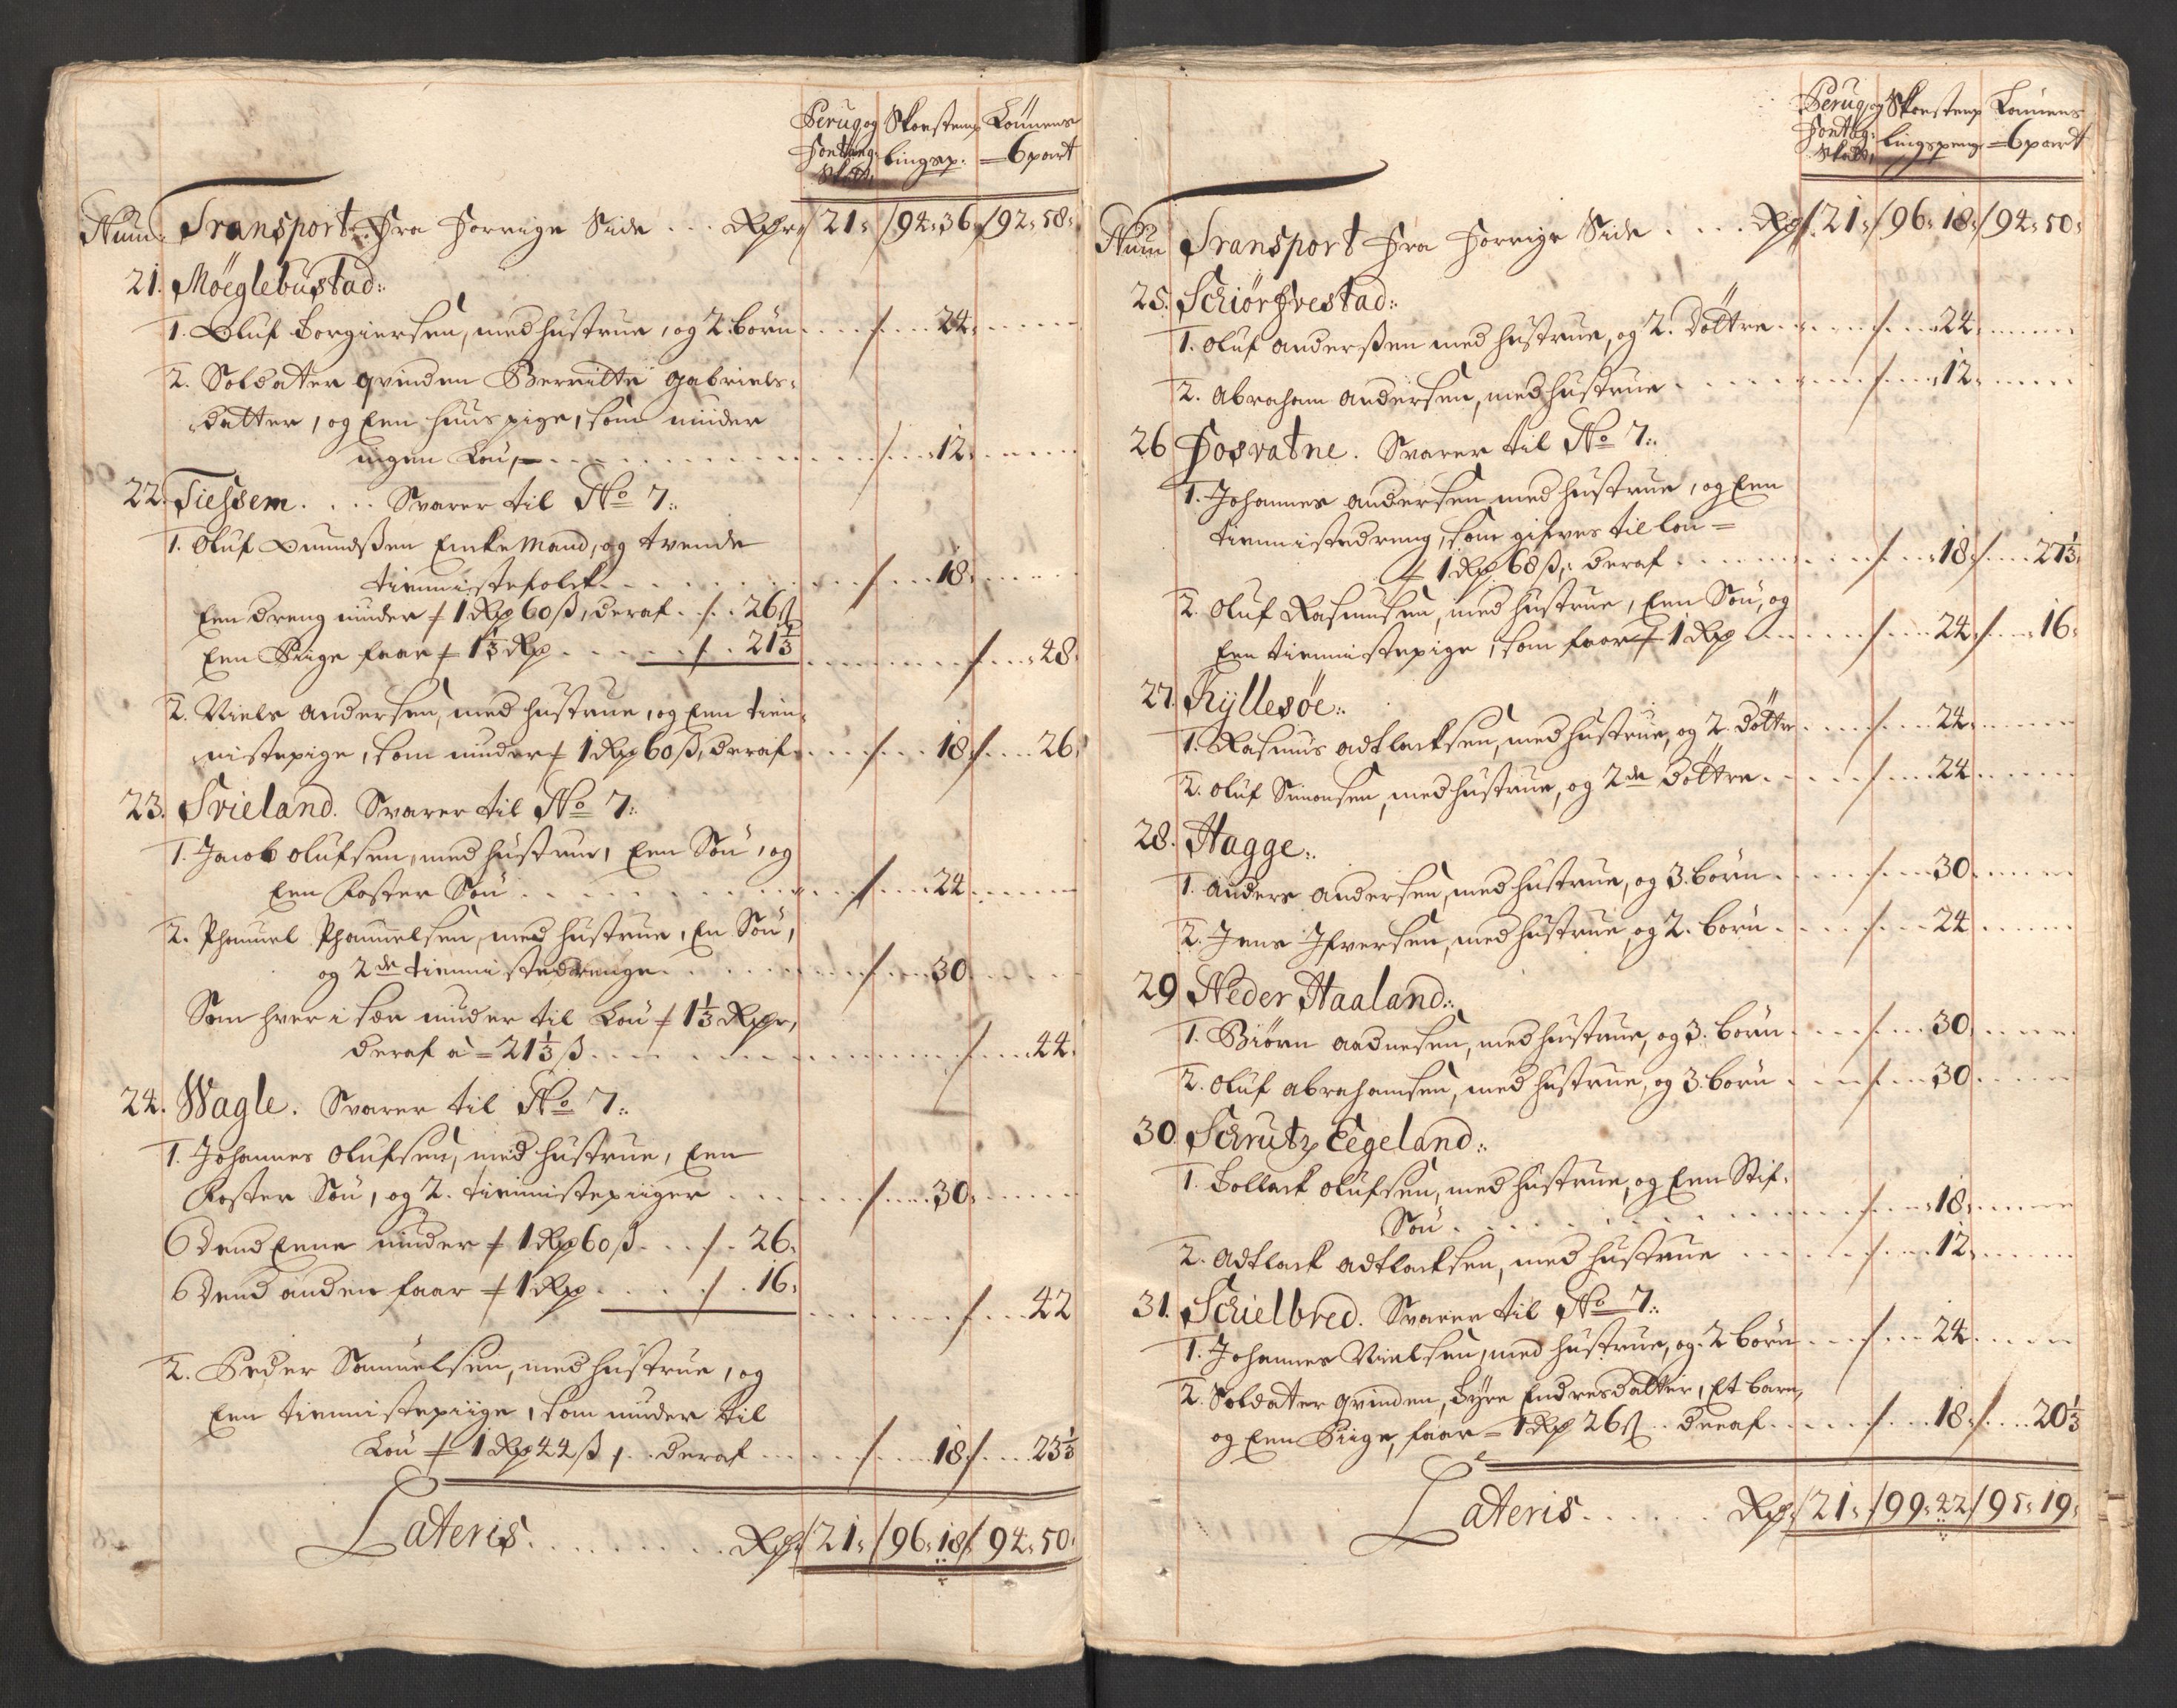 Peruq og Skorsteng Lönnens
Fontang: lingsp. = 6 part
Skatt,
Num: Transport Fra Forrige Side ... Rdr / 21: / 94: 36 / 92: 58:
21. Möeglebustad:
1. Oluf Torgiersen, med hustrue, og 2. börn .... / .... 24: ....
2. Soldater qvinden Berritte Gabriels-
datter, og Een huus pige, som niuder
ingen Lön, .... / .... 12: ....
22. Tiessem. ... Svarer til No 7:
1. Oluf Omundßen Enke Mand, og tvende
tiennistefolck .... / .... 18 ....
Een dreng niuder 1 Rdr 60 ß, deraf . / . 26 ß
Een Piige faar 1 1/3 Rdr ..... / . 21 1/3 .... / ... 48:
2. Niels Andersen, med hustrue, og Een tien-
nistepige, som niuder 1 Rdr 60 ß, deraf .... / ... 18 / .... 26:
23. Svieland. Svarer til No 7:
1. Jacob Olufsen, med hustrue, Een Sön, og
Een Foster Sön .... / .... 24 ....
2. Phanuel Phanuelsen, med hustrue, En Sön,
og 2de tiennistedrenge .... / .... 30 ....
Som hver i sær niuder til Lön 1 1/3 Rdr,
deraf a = 21 1/3 ß .... / .... 44:
24. Wagle. Svarer til No 7:
1. Johannes Olufsen, med hustrue, Een
Foster Sön, og 2. tiennistepiiger .... / .... 30: ....
Dend Eene niuder 1 Rdr 60 ß ... / . 26:
Dend anden faar 1 Rdr .... / . 16: .... / .... 42
2. Peder Samuelsen, med hustrue, og
Een tiennistepiige, som niuder til
Lön 1 Rdr 44 ß, .. deraf .... / .... 18 / .... 23 1/3
Lateris ........ Rdr / 21: / 96: 18 / 94: 50:
Peruq og Skorsteng Lönnens
Fontag: lingspeng = 6 part
Skatt,
Num Transport Fra Forrige Side .... Rdr / 21: / 96: 18: / 94: 50:
25. Schiörfvestad:
1. Oluf Anderßen med hustrue, og 2. döttre .... / .... 24 ....
2. Abraham Andersen, med hustrue .... / .... 12: ....
26 Fosvatne. Svarer til No 7:
1. Johannes Andersen med hustrue, og Een
tiennistedreng, som gifves til lön =
1 Rdr 68 ß, deraf .... / .... 18: / .... 27 1/3:
2. Oluf Rasmusen, med hustrue, Een Sön, og
Een tiennistepige, som faar 1 Rdr .... / .... 24 / .... 16:
27. Kyllesöe:
1. Rasmus Adtlacksen, med hustrue, og 2. döttre .... / .... 24 ....
2. Oluf Simonsen, med hustrue, og 2de Döttre .... / .... 24 ....
28. Hagge:
1. Anders Andersen, med hustrue, og 3. börn .... / .... 30 ....
2. Jens Ifversen, med hustrue, og 2. börn .... / .... 24 ....
29 Neder Haaland:
1. Biörn Aadnesen, med hustrue, og 3. börn .... / .... 30 ....
2. Oluf Abrahamsen, med hustrue, og 3. börn .... / .... 30 ....
30. Schrutz Eegeland:
1. Tollack Olufsen, med hustrue, og Een Stif-
Sön .... / .... 18: ....
2. Adtlack Adtlacksen, med hustrue .... / .... 12, ....
31. Schielbred. Svarer til No 7:
1. Johannes Nielsen, med hustrue, og 2 börn ... / ... 24 ....
2. Soldater qvinden, Endresdatter, Et barn,
og Een Piige, faar = 1 Rdr 26 ß .. deraf .... / .... 18 / .... 20 1/3
Lateris ...... Rdr / 21: / 99: 42 / 95: 19: